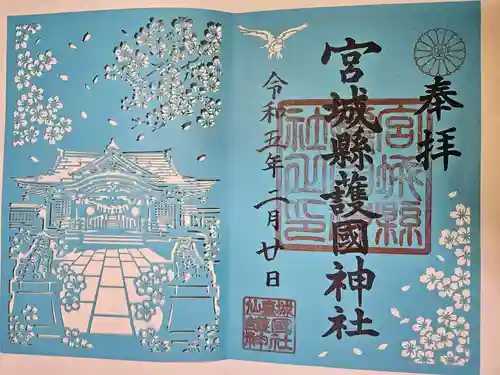 奉拝
宮城縣護國神社
令和五年二月廿日
宮城縣
護國神
社之印